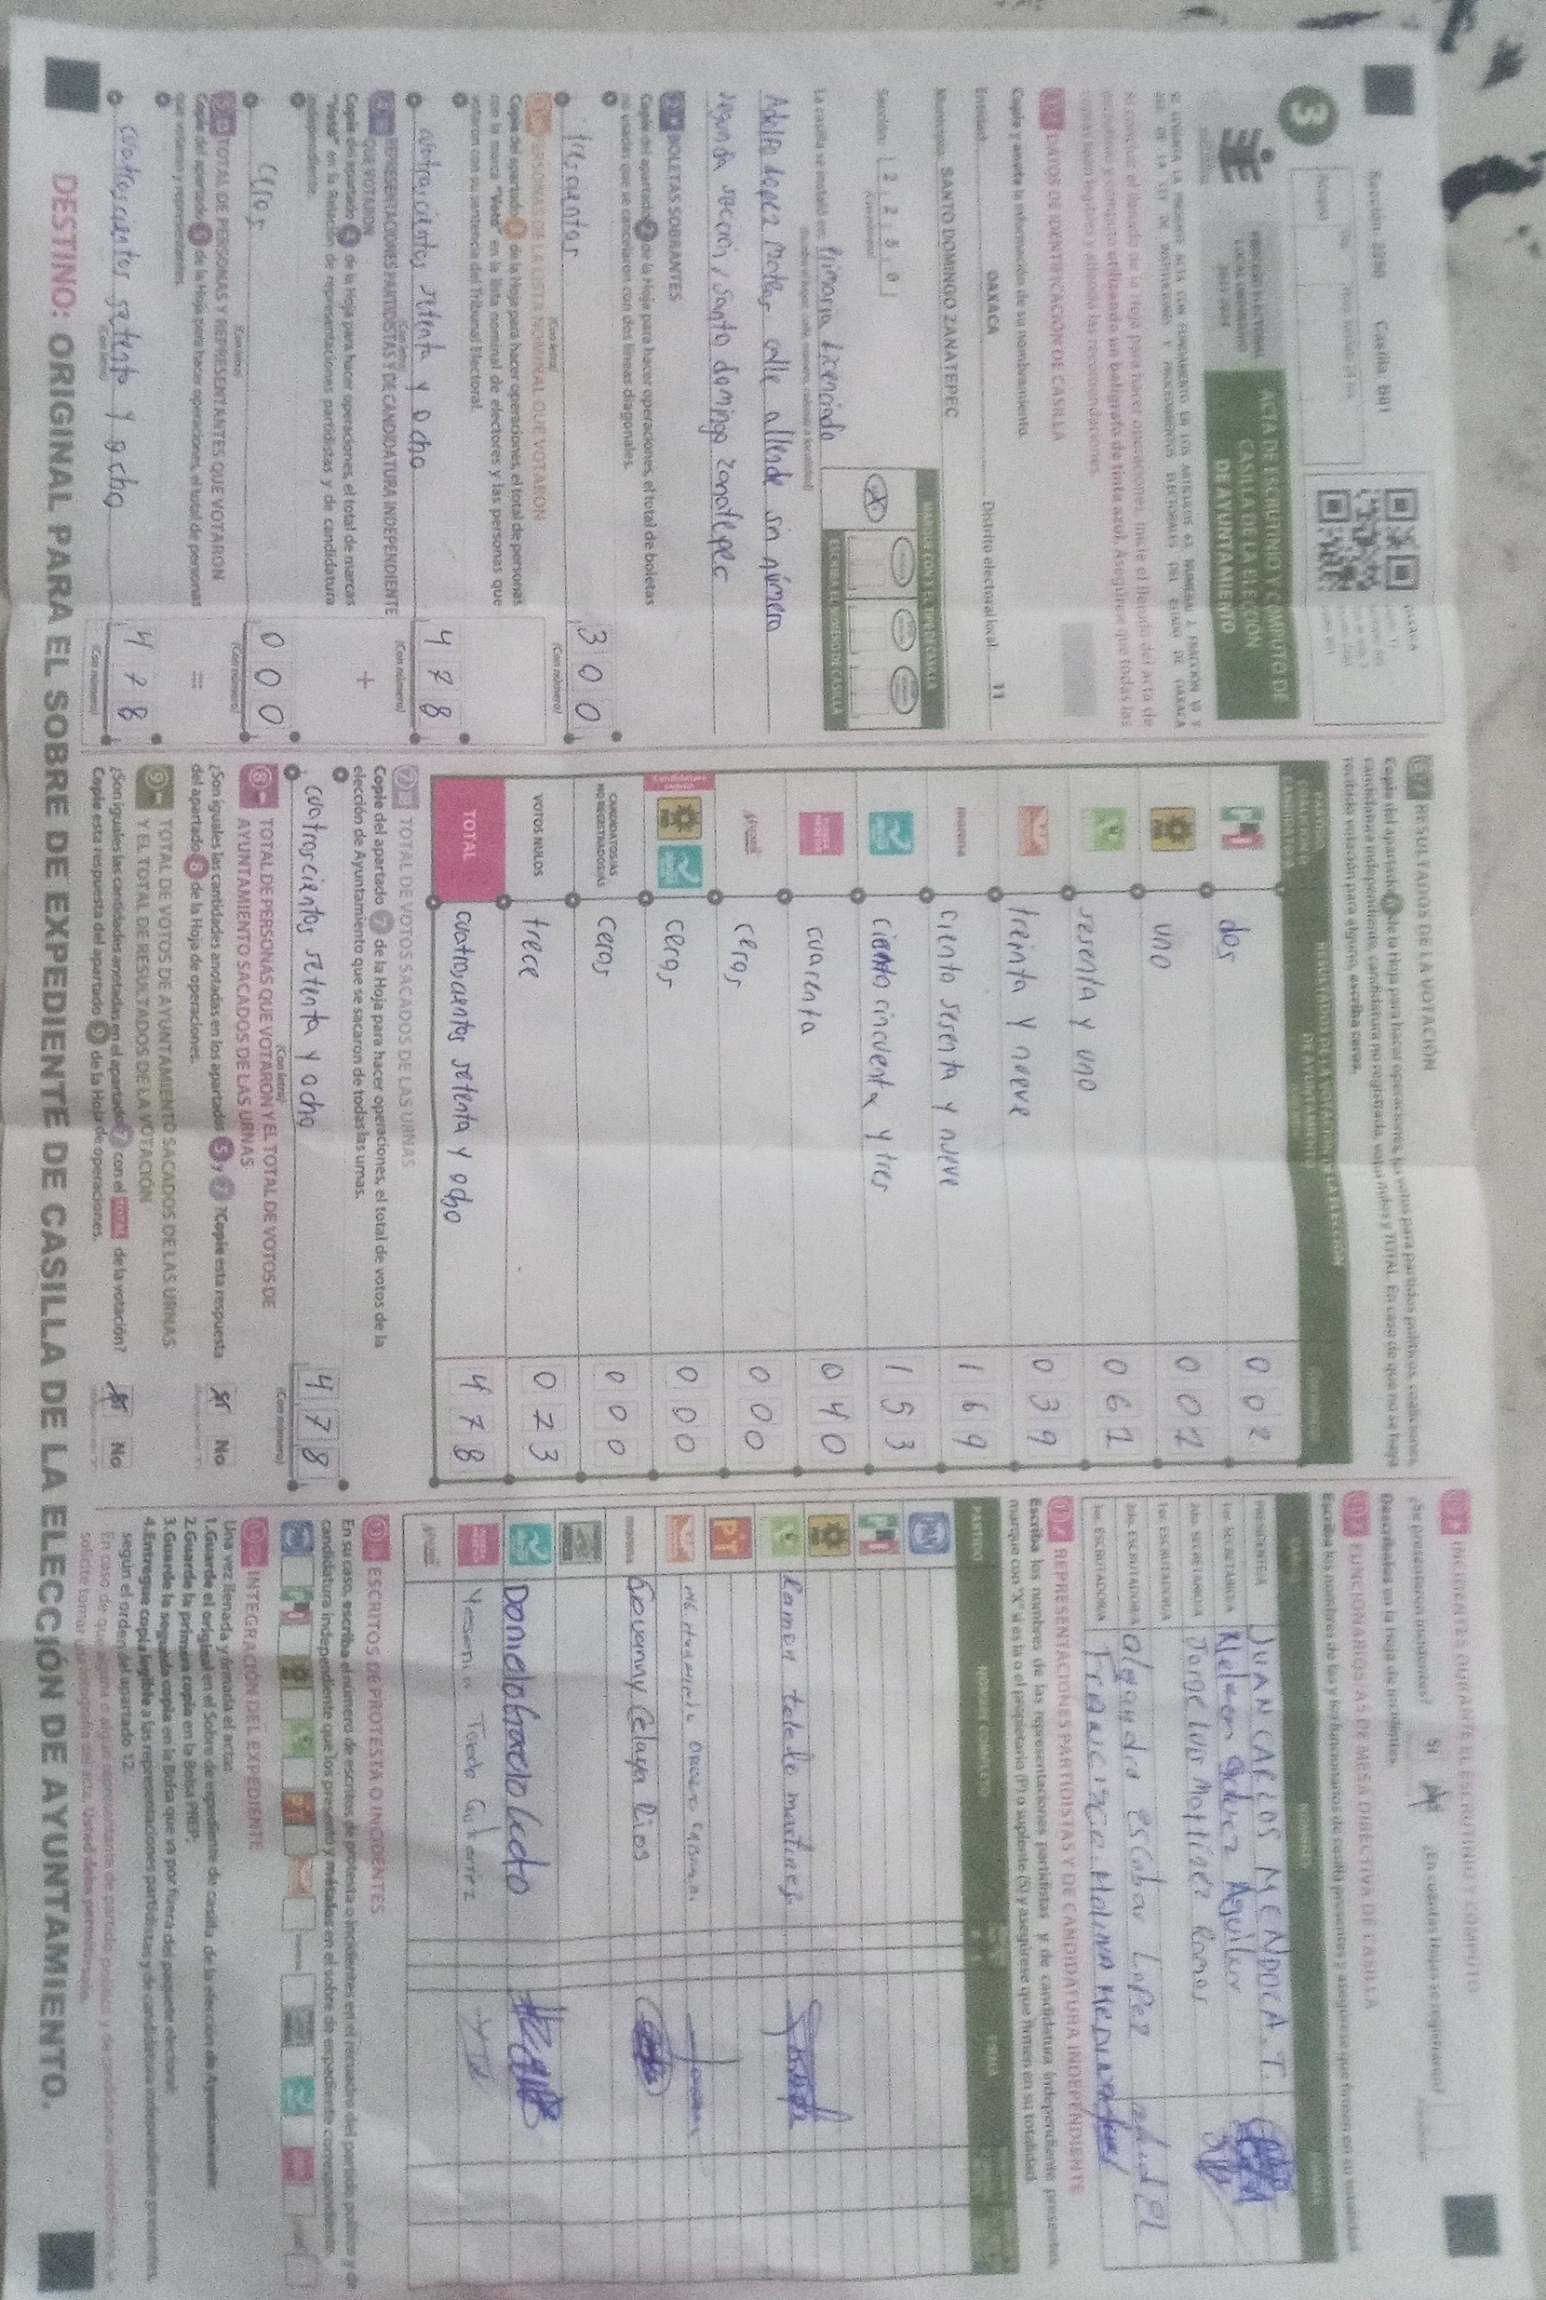 Sección: 2250 Casilla: B01
OAXACA
3
PROCESO ELECTORAL
LOCAL ORDINARIO
2023-2024
ACTA DE ESCRUTINIO Y CÓMPUTO DE
CASILLA DE LA ELECCIÓN
DE AYUNTAMIENTO
DATOS DE IDENTIFICACIÓN DE CASILLA
Copie y anote la información de su nombramiento.
Entidad: OAXACA Distrito electoral local: 11
Municipio: SANTO DOMINGO ZANATEPEC
Sección: 2 2 5 0
(Con número)
MARQUE CON X EL TIPO DE CASILLA
X
ESCRIBA EL NÚMERO DE CASILLA
La casilla se instaló en: Primaria Licenciado
Adolfo Lopez Mateos calle allende sin número
segunda sección, santo domingo zanatepec
BOLETAS SOBRANTES
Copie del apartado 2 de la Hoja para hacer operaciones, el total de boletas
no usadas que se cancelaron con dos líneas diagonales.
trescientos 3 0 0
(Con letra) (Con número)
PERSONAS DE LA LISTA NOMINAL QUE VOTARON
Copie del apartado de la Hoja para hacer operaciones, el total de personas
con la marca "Votó" en la lista nominal de electores y las personas que
votaron con su sentencia del Tribunal Electoral.
cuatrocientos setenta y ocho 4 7 8
(Con letra) (Con número)
REPRESENTACIONES PARTIDISTAS Y DE CANDIDATURA INDEPENDIENTE
QUE VOTARON
+
Copie del apartado 4 de la Hoja para hacer operaciones, el total de marcas
"Votó" en la Relación de representaciones partidistas y de candidatura
independiente.
ceros 0 0 0
(Con letra) (Con número)
TOTAL DE PERSONAS Y REPRESENTANTES QUE VOTARON
=
Copie del apartado 5 de la Hoja para hacer operaciones, el total de personas
que votaron y representantes.
cuatrocientos setenta y ocho 4 7 8
(Con letra) (Con número)
RESULTADOS DE LA VOTACIÓN
Copie del apartado 6 de la Hoja para hacer operaciones, los votos para partidos políticos, coaliciones,
candidatura independiente, candidatura no registrada, votos nulos y TOTAL. En caso de que no se haya
recibido votación para alguno, escriba ceros.
RESULTADO DE LA VOTACIÓN DE LA ELECCIÓN
DE AYUNTAMIENTO
dos 0 0 2
uno 0 0 1
sesenta y uno 0 6 1
treinta y nueve 0 3 9
morena ciento sesenta y nueve 1 6 9
ciento cincuenta y tres 1 5 3
cuarenta 0 4 0
ceros 0 0 0
ceros 0 0 0
CANDIDATOS/AS
NO REGISTRADOS/AS ceros 0 0 0
VOTOS NULOS trece 0 1 3
TOTAL cuatrocientos setenta y ocho 4 7 8
7 TOTAL DE VOTOS SACADOS DE LAS URNAS
Copie del apartado 7 de la Hoja para hacer operaciones, el total de votos de la
elección de Ayuntamiento que se sacaron de todas las urnas.
cuatrocientos setenta y ocho 4 7 8
(Con letra) (Con número)
8 TOTAL DE PERSONAS QUE VOTARON Y EL TOTAL DE VOTOS DE
AYUNTAMIENTO SACADOS DE LAS URNAS
¿Son iguales las cantidades anotadas en los apartados 5 y 7? Copie esta respuesta
del apartado 8 de la Hoja de operaciones.
No
9 TOTAL DE VOTOS DE AYUNTAMIENTO SACADOS DE LAS URNAS
Y EL TOTAL DE RESULTADOS DE LA VOTACIÓN
¿Son iguales las cantidades anotadas en el apartado 7 con el TOTAL de la votación?
Copie esta respuesta del apartado 9 de la Hoja de operaciones.
No
INCIDENTES DURANTE EL ESCRUTINIO Y CÓMPUTO
¿Se presentaron incidentes? Sí ¿En cuántas Hojas se registraron?
Descríbalos en la hoja de incidentes.
FUNCIONARIOS/AS DE MESA DIRECTIVA DE CASILLA
Escriba los nombres de las y los funcionarios de casilla presentes y asegúrese que firmen en su totalidad.
PRESIDENTE/A JUAN CARLOS MENDOCA. T.
1er. SECRETARIO/A
2do. SECRETARIO/A Jorge Luis Martínez Ramos
1er. ESCRUTADOR/A
2do. ESCRUTADOR/A alejandra escobar Lopez
3er. ESCRUTADOR/A
REPRESENTACIONES PARTIDISTAS Y DE CANDIDATURA INDEPENDIENTE
Escriba los nombres de las representaciones partidistas y de candidatura independiente presentes,
marque con "X" si es la o el propietario (P) o suplente (S) y asegúrese que firmen en su totalidad.
PARTIDO NOMBRE COMPLETO FIRMA
PAN
PRI
PRD
Ramon toledo martinez
PT
morena Giovanny Celaya Rios
Yesenia Toledo Gutierrez
ESCRITOS DE PROTESTA O INCIDENTES
En su caso, escriba el número de escritos de protesta o incidentes en el recuadro del partido político y de
candidatura independiente que los presentó y métalos en el sobre de expediente correspondiente.
INTEGRACIÓN DEL EXPEDIENTE
Una vez llenada y firmada el acta:
1. Guarde el original en el Sobre de expediente de casilla de la elección de Ayuntamiento;
2. Guarde la primera copia en la Bolsa PREP;
3. Guarde la segunda copia en la Bolsa que va por fuera del paquete electoral;
4. Entregue copia legible a las representaciones partidistas y de candidatura independiente presentes,
según el orden del apartado 12.
DESTINO: ORIGINAL PARA EL SOBRE DE EXPEDIENTE DE CASILLA DE LA ELECCIÓN DE AYUNTAMIENTO.